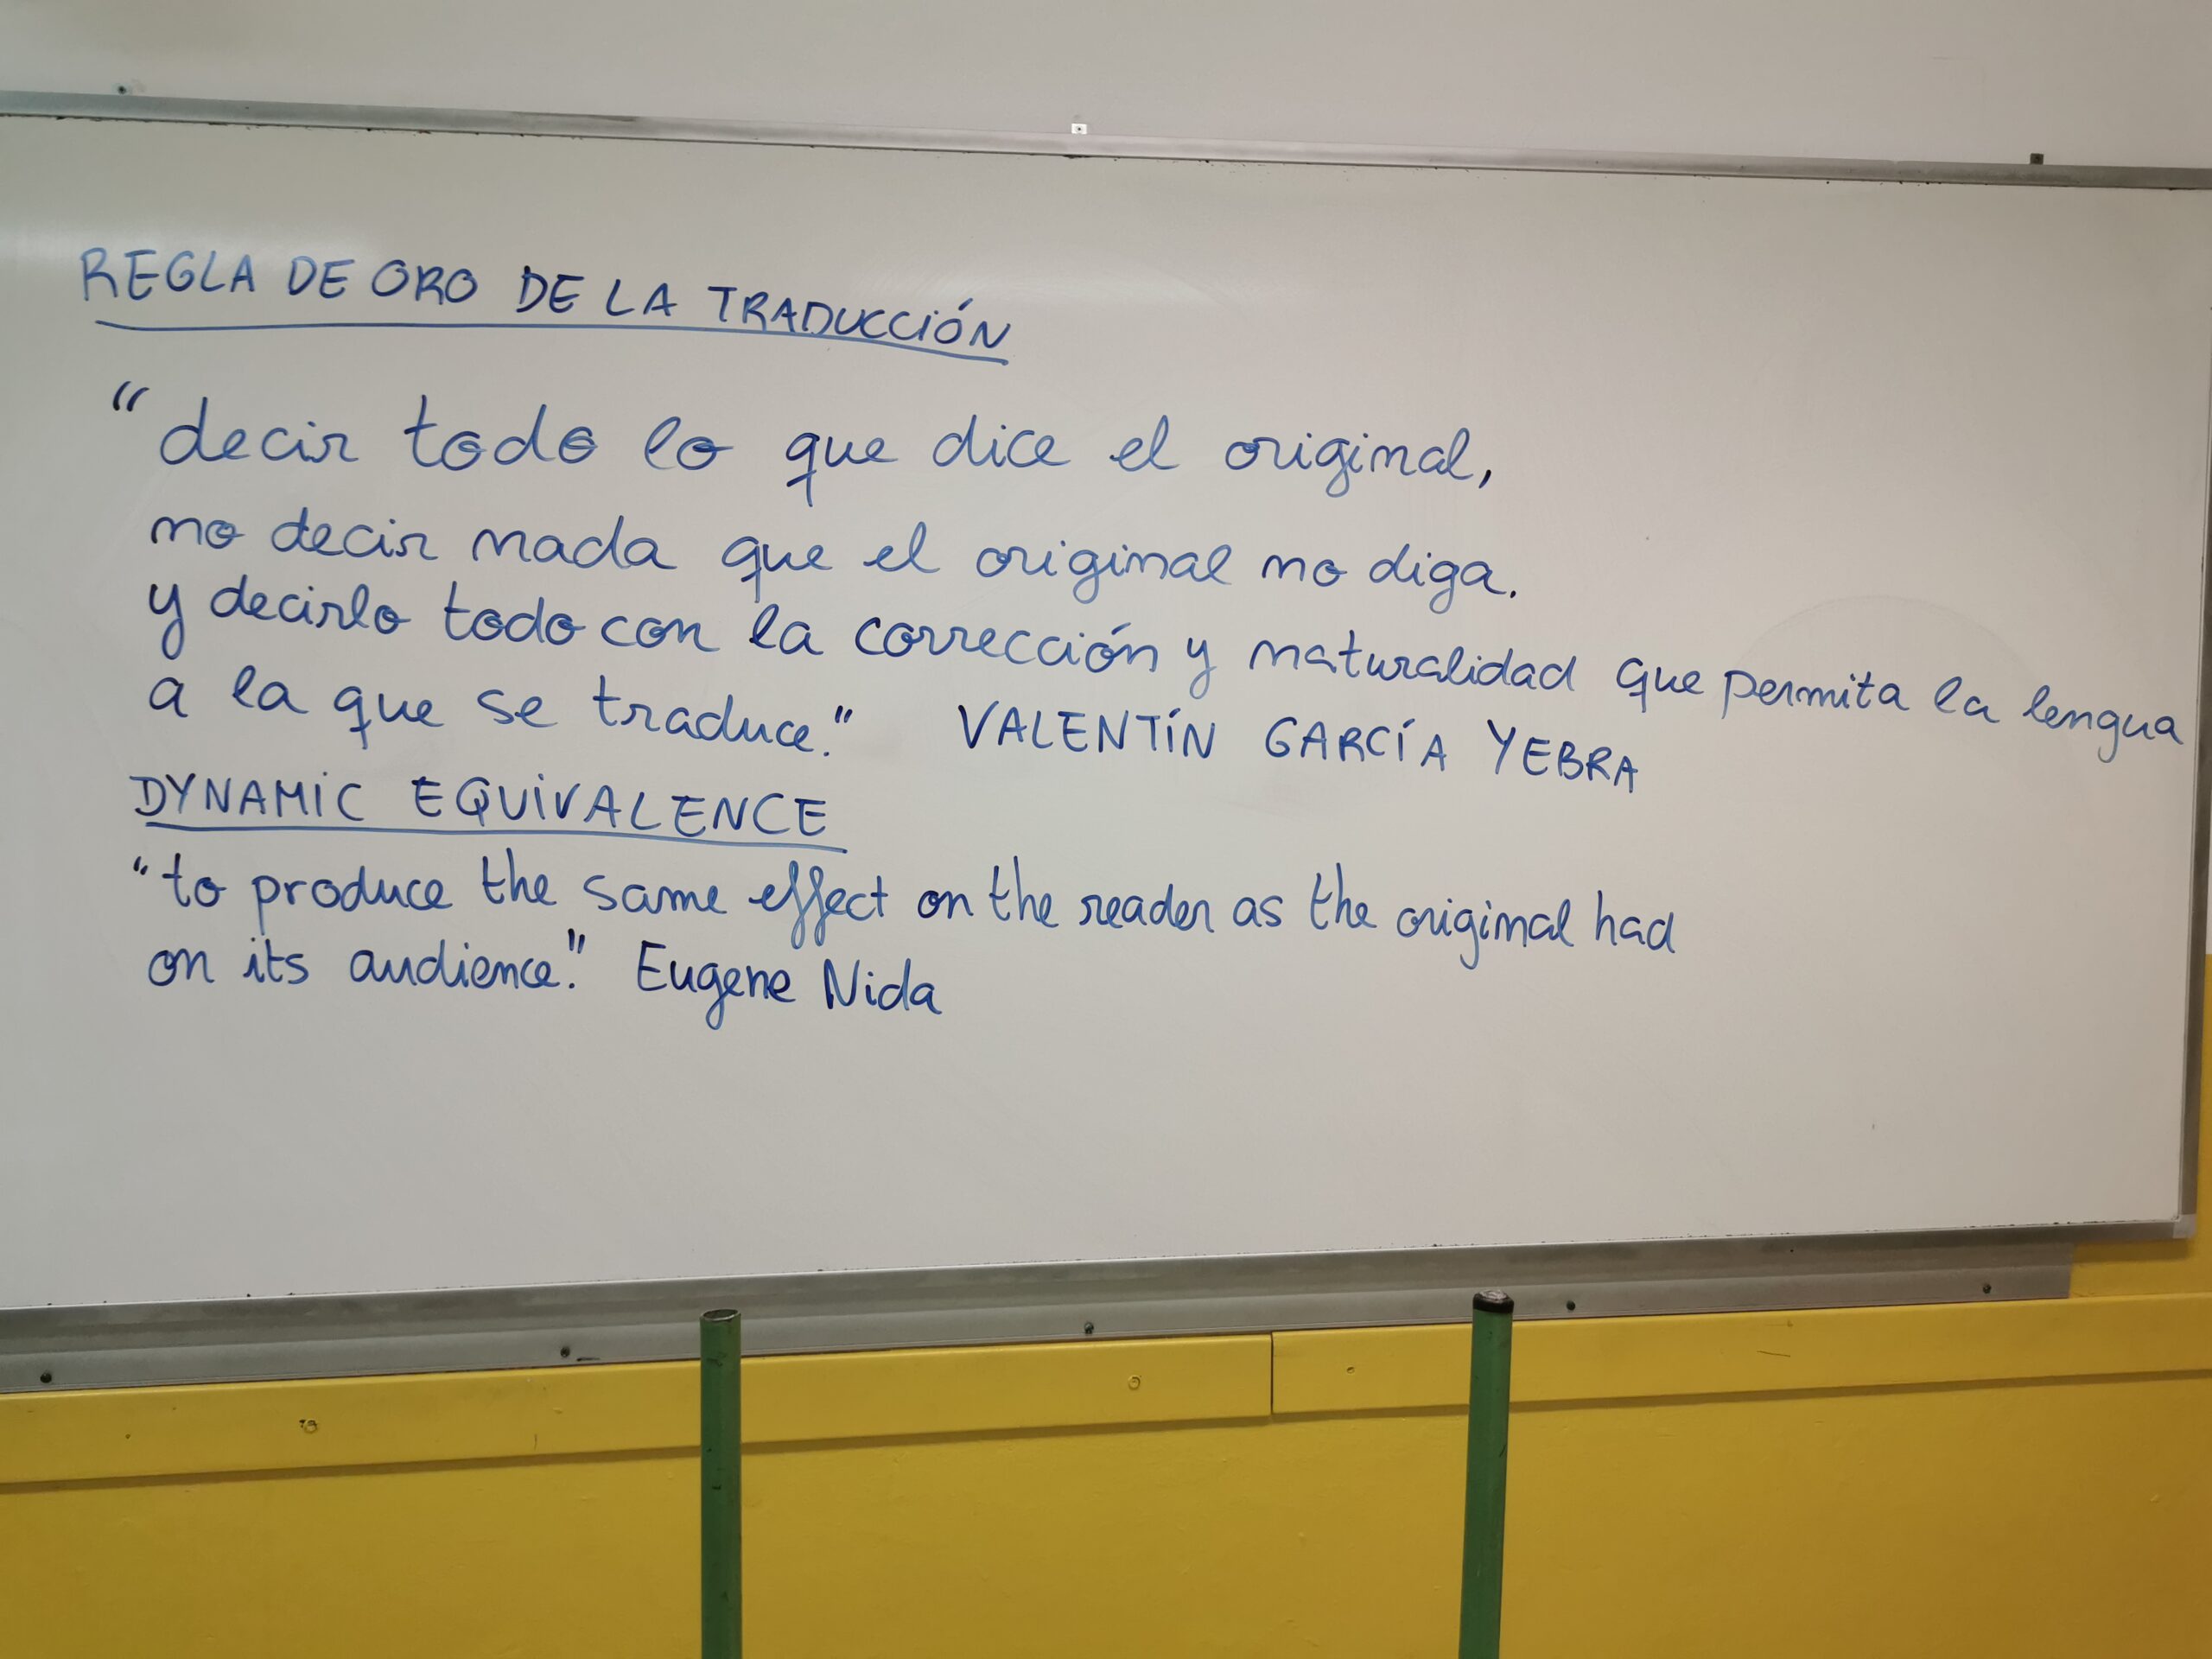 REGLA DE ORO DE LA TRADUCCIÓN
"decir todo lo que dice el original,
no decir nada que el original no diga.
y decirlo todo con la corrección y naturalidad que permita la lengua
a la que se traduce." VALENTÍN GARCÍA YEBRA
DYNAMIC EQUIVALENCE
"to produce the same effect on the reader as the original had
on its audience." Eugene Nida